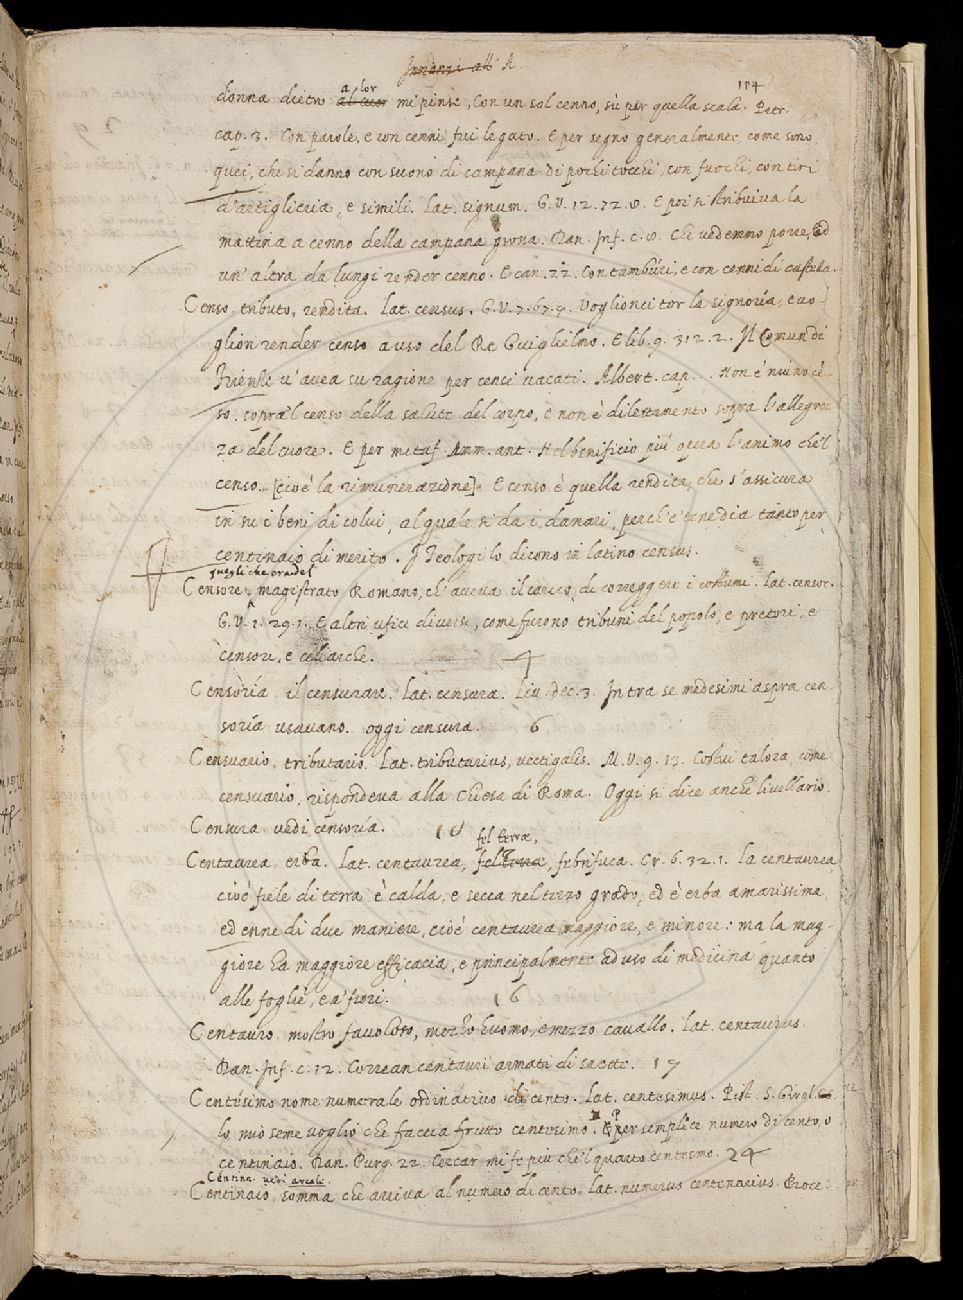 Innanzi all' A.
194
a lor
donna dietro al cuor mi pinse, Con un sol cenno, sù per quella scala. Petr.
cap. 3. Con parole, e con cenni fui legato. E per segno generalmente come sono
quei, che si danno con suono di campana di pochi tocchi, con fuochi, con tiri
d'artiglieria, e simili. Lat. signum. G. V. 12. 72. 8. E poi si stribuiva la
mattina a cenno della campana grossa. Dan. Inf. c. 8. Che vedemmo porre, Ed
un' altra da lungi render cenno. E can. 22. Con tamburi, e con cenni di castella.
Censo, tributo, rendita. Lat. census. G. V. 7. 67. 4. Voglionci tor la signoria, e vo-
glion render censo a uso del Re Guiglielmo. E lib. 9. 312. 2. Il Comun di
Firenze v' avea su ragione per censi vacati. Albert. cap. . . Non è niuno cẽ-
so, sopra'l censo della salute del corpo, e non è dilettamento sopra l'allegrez-
za del cuore. E per metaf. Amm. ant. Nel benificio più opera l'animo che'l
censo. [cioè la rimunerazione]. E censo è quella rendita, che s'assicura
in su i beni di colui, al quale si da i danari, perch' e' ne dia tanto per
centinaio di merito. I Teologi lo dicono in latino census.
quegli che era del
Censore, magistrato Romano, ch' aveva il carico di correggere i costumi. Lat. censor.
G. V. 1. 29. 1. E altri ufici diversi, come furono tribuni del popolo, e pretori, e
censori, e celiarche. 4
Censoría il censurare. Lat. censura. Liv. dec. 3. Intra se medesimi aspra cen-
soría usavano. oggi censura. 6
Censuario, tributario. Lat. tributarius, vectigalis. M. V. 9. 13. Costui talora, come
censuario, rispondeva alla Chiesa di Roma. Oggi si dice anche livellario.
Censura vedi censoría.
fel terræ,
Centaurea erba. Lat. centaurea, fel terra, febrifuca. Cr. 6. 32. 1. La centaurea
cioè fiele di terra è calda, e secca nel terzo grado, ed è erba amarissima,
ed enne di due maniere, cioè centaurea maggiore, e minore: ma la mag-
giore ha maggiore efficacia, e principalmente ad uso di medicina quanto
alle foglie, e a' fiori. 16
Centauro mostro favoloso, mezzo huomo, e mezzo cavallo. Lat. centaurus.
Dan. Inf. c. 12. Correan centauri armati di saette. 17
Centésimo nome numerale ordinativo di cento. Lat. centesimus. Pist. S. Girol.
lo mio seme voglio che faccia frutto centesimo. E per semplice numero di cento, o
centinaio. Dan. Purg. 22. Cercar mi fe più che'l quarto centesmo. 24
Centina vedi arcale.
Centinaio, somma che arriva al numero di cento. Lat. numerus centenarius. Bocc.